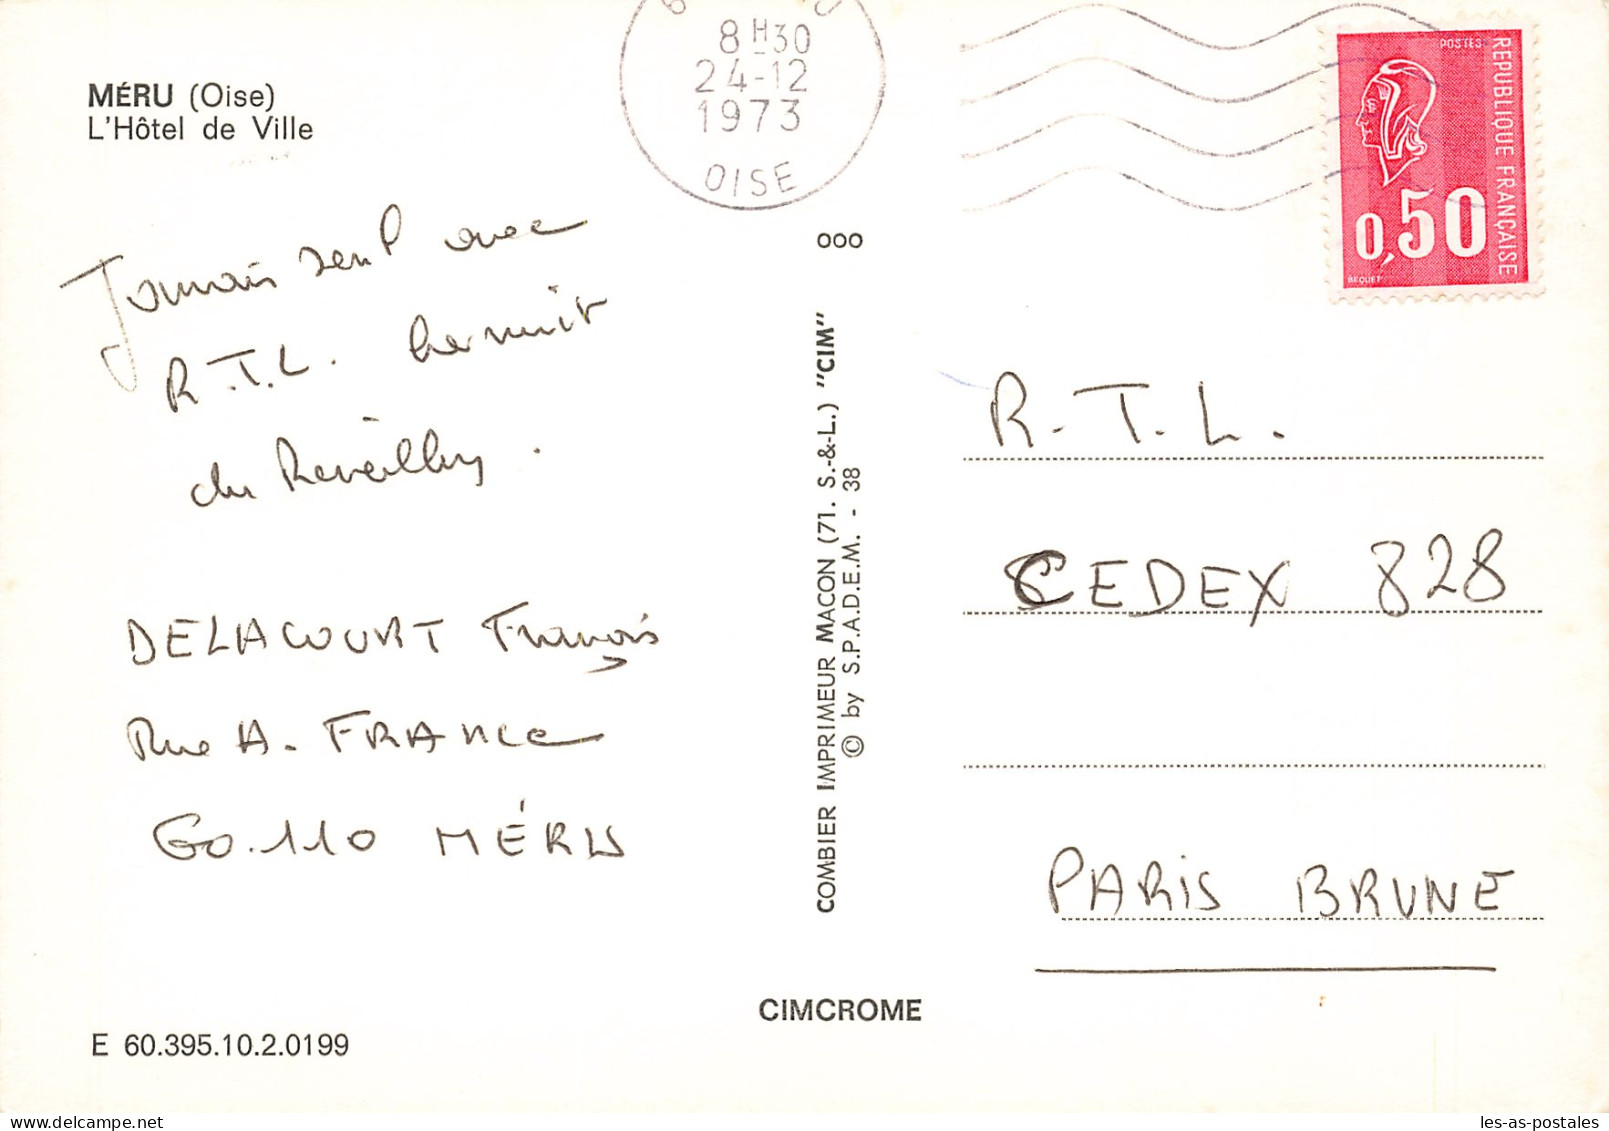 MÉRU (Oise)
L'Hôtel de Ville
8H30
24-12
1973
OISE
POSTES
REPUBLIQUE FRANÇAISE
0,50
BEQUET
Jamais seul avec
R.T.L. la nuit
du Réveillon.
DELACOURT François
Rue A. FRANCE
60.110 MÉRU
ooo
COMBIER IMPRIMEUR MACON (71. S.-&-L.) "CIM"
© by S.P.A.D.E.M. - 38
R.T.L.
CEDEX 828
PARIS BRUNE
CIMCROME
E 60.395.10.2.0199
les-as-postales